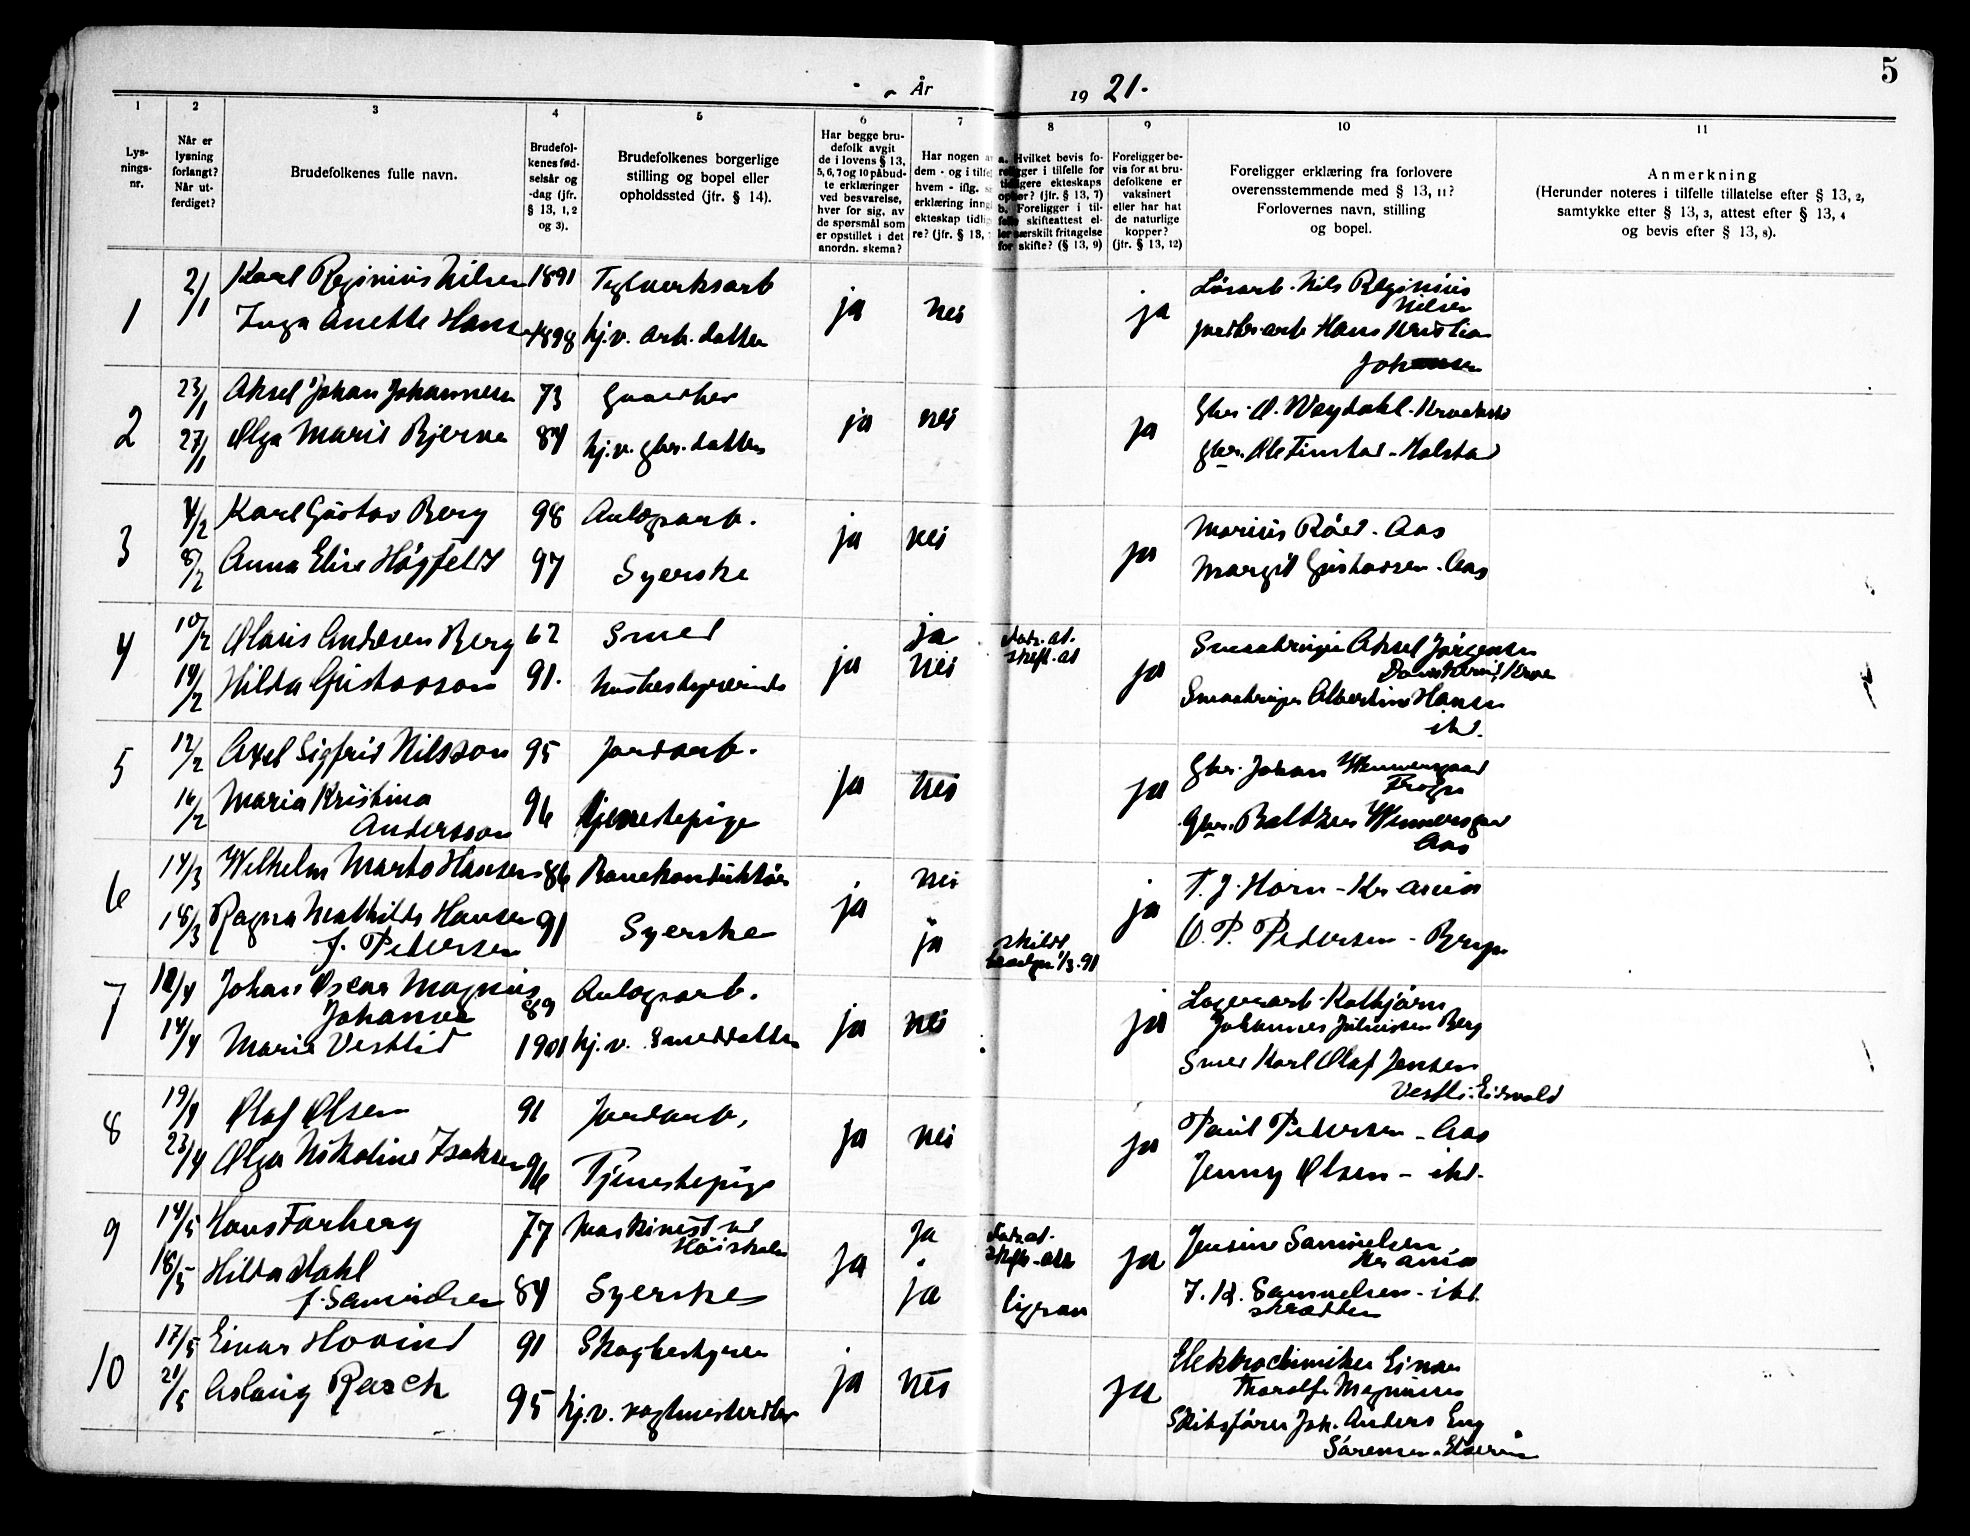 År 1921.
5
1 2 3 4 5 6 7 8 9 10 11
Lys-
nings-
nr.
Når er
lysning
forlangt?
Når ut-
ferdiget?
Brudefolkenes fulle navn.
Brudefol-
kenes fød-
selsår og
-dag (jfr.
§ 13, 1, 2
og 3).
Brudefolkenes borgerlige
stilling og bopel eller
opholdssted (jfr. § 14).
Har begge bru-
defolk avgit
de i lovens § 13,
5, 6, 7 og 10 påbud-
te erklæringer
ved besvarelse,
hver for sig, av
de spørsmål som
er opstillet i det
anordn. skema?
Har nogen a
dem - og i tilfel
hvem - iflg. s
erklæring inng
ekteskap tidlig
re? (jfr. § 13,
a. Hvilket bevis fo-
religger i tilfelle for
tidligere ekteskaps
ophør? (jfr. § 13, 7)
b. Foreligger i til-
felle skifteattest el-
ler særskilt fritagelse
for skifte? (§ 13, 9)
Foreligger be-
vis for at bru-
defolkene er
vaksinert
eller har hat
de naturlige
kopper?
(jfr. § 13, 12)
Foreligger erklæring fra forlovere
overensstemmende med § 13, 11?
Forlovernes navn, stilling
og bopel.
Anmerkning
(Herunder noteres i tilfelle tillatelse efter § 13, 2,
samtykke efter § 13, 3, attest efter § 13, 4
og bevis efter § 13, 8).
1 2/1 Karl Reginius Nilsen 1891 Teglverksarb ja nei ja Løsarb. Nils Reginius
Nilsen
Inga Anette Hans 1898 hj.v. arb. datter jordbr.arb Hans Kristian
Johansen
2 23/1 Aksel Johan Johannesen 73 Gaardbr ja nei ja Gbr. O. Weydahl
27/1 Olga Marie Bjerve 84 hj.v. gbr. datter gbr. Ole Finstad - Holstad
3 4/2 Karl Gustav Berg 98 Anlegsarb. ja nei ja Marius Röed - Aas
8/2 Anna Elise Högfeldt 97 Syerske Margit Gustavsen - Aas
4 10/2 Olaus Andersen Berg 62 Smed ja ja skift.at ja Smaabruger Aksel Jörgensen
14/2 Hilda Gustavson 91. Husbestyrerinde nei Smaabruger Albertinus Hansen
ibd.
5 12/2 Axel Sigfrid Nilsson 95 Jordarb. ja nei ja Gbr. Johan Wennersgaard
Frogn
16/2 Maria Kristina
Andersson 96 tjenestepige Gbr. Baltzer Wennersgaard
Aas
6 14/3 Wilhelm Marto Hansen 86 Banekonduktör ja nei ja T. J. Horn - Kr.ania
18/3 Ragna Mathilde Hansen
f. Pedersen 91 Syerske ja skilt O. P. Pedersen - Bryn
7 12/4 Johan Oscar Magnus
Johansen 89 Anlegsarb. ja nei ja Lagerarb. Kolbjörn
Johannes Juliussen Berg
14/4 Marie Vestlid 1901 hj.v. Smeddatter Smed Karl Olaf Jensen
Vestli. Eidsvold
8 19/4 Olaf Olsen 91 Jordarb. ja nei ja Paul Pedersen - Aas
23/4 Olga Nikoline Isaksen 96 Tjenestepige Jenny Olsen - ibd.
9 14/5 Hans Forberg 77 Maskinist ved
Höiskolen ja ja skift-att ja Jensine Samuelsen
Kr.ania
18/5 Hilda Dahl
f. Samuelsen 84 Syerske ja ligran J. K. Samuelsen - ibd.
skrædder
10 17/5 Einar Hovind 91 Skogbestyrer ja nei ja Elektrochemiker Einar
Thorolf Magnus
21/5 Aslaug Rasch 95 hj.v. vagtmesterdtr Skibsförer Joh. Anders Eng
Sörensen